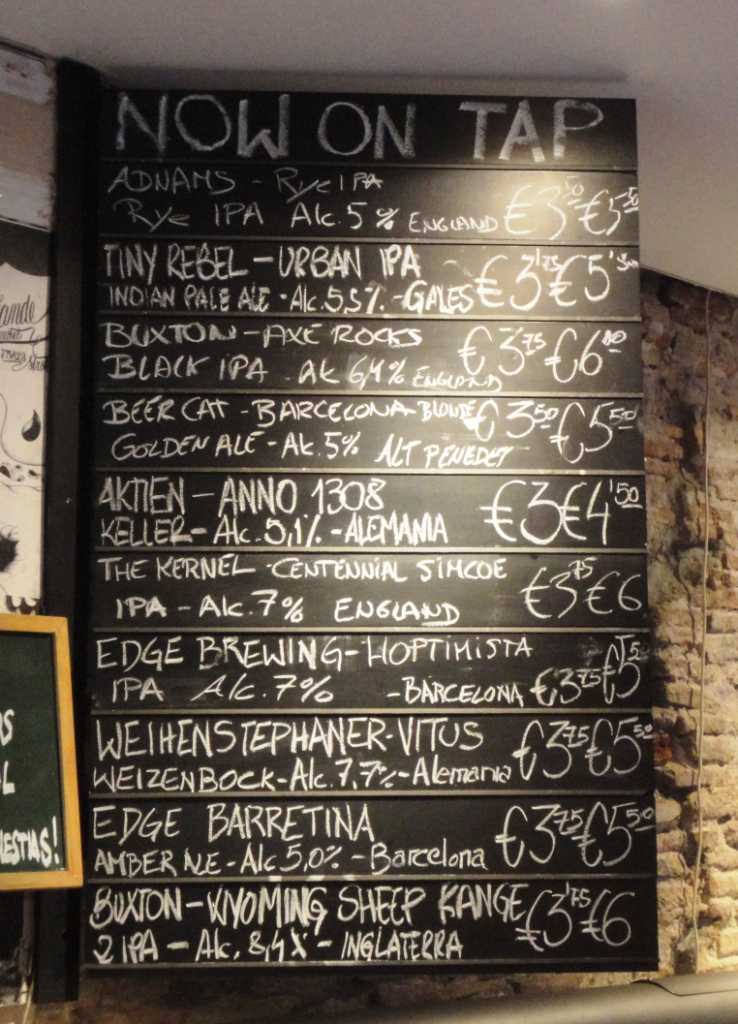 NOW ON TAP
ADNAMS - Rye IPA
Rye IPA Alc. 5% ENGLAND €3'50 €5'50
TINY REBEL - URBAN IPA
INDIAN PALE ALE - Alc. 5,5% - GALES €3'75 €5'50
BUXTON - AXE ROCKS
BLACK IPA - alc 6,4% ENGLAND €3'75 €6'00
BEER CAT - BARCELONA BLONDE
GOLDEN ALE - Alc. 5% ALT PENEDET €3'50 €5'50
AKTIEN - ANNO 1308
KELLER - Alc. 5,1% - ALEMANIA €3 €4'50
THE KERNEL - CENTENNIAL SIMCOE
IPA - Alc. 7% ENGLAND €3'75 €6
EDGE BREWING - HOPTIMISTA
IPA Alc. 7% - BARCELONA €3'75 €5'50
WEIHENSTEPHANER - VITUS
WEIZENBOCK - Alc. 7,7% - Alemania €3'75 €5'50
EDGE BARRETINA
AMBER ALE - Alc 5,0% - Barcelona €3'75 €5'50
BUXTON - WYOMING SHEEP RANGE
2 IPA - Alc. 8,4% - INGLATERRA €3'75 €6